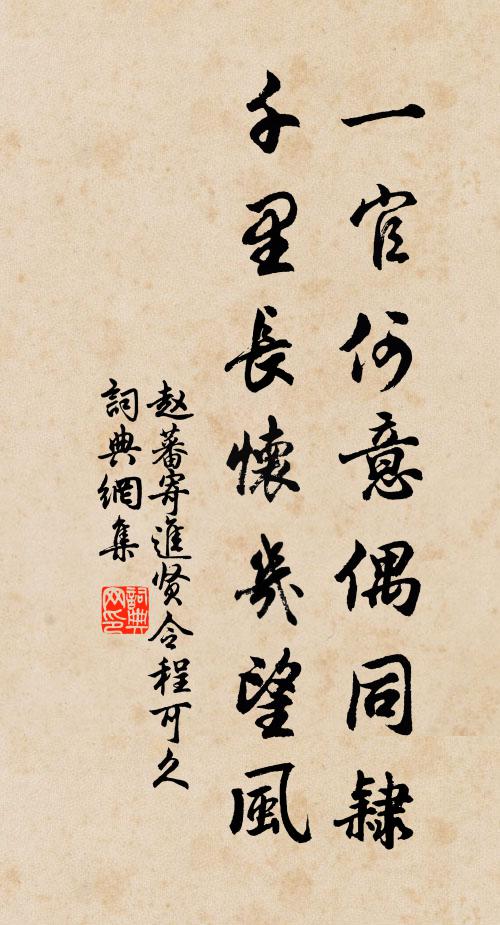 一官何意偶同隸
千里長懷幾望風
赵蕃寄進贤令程可久
詞典網集
詞典
网印